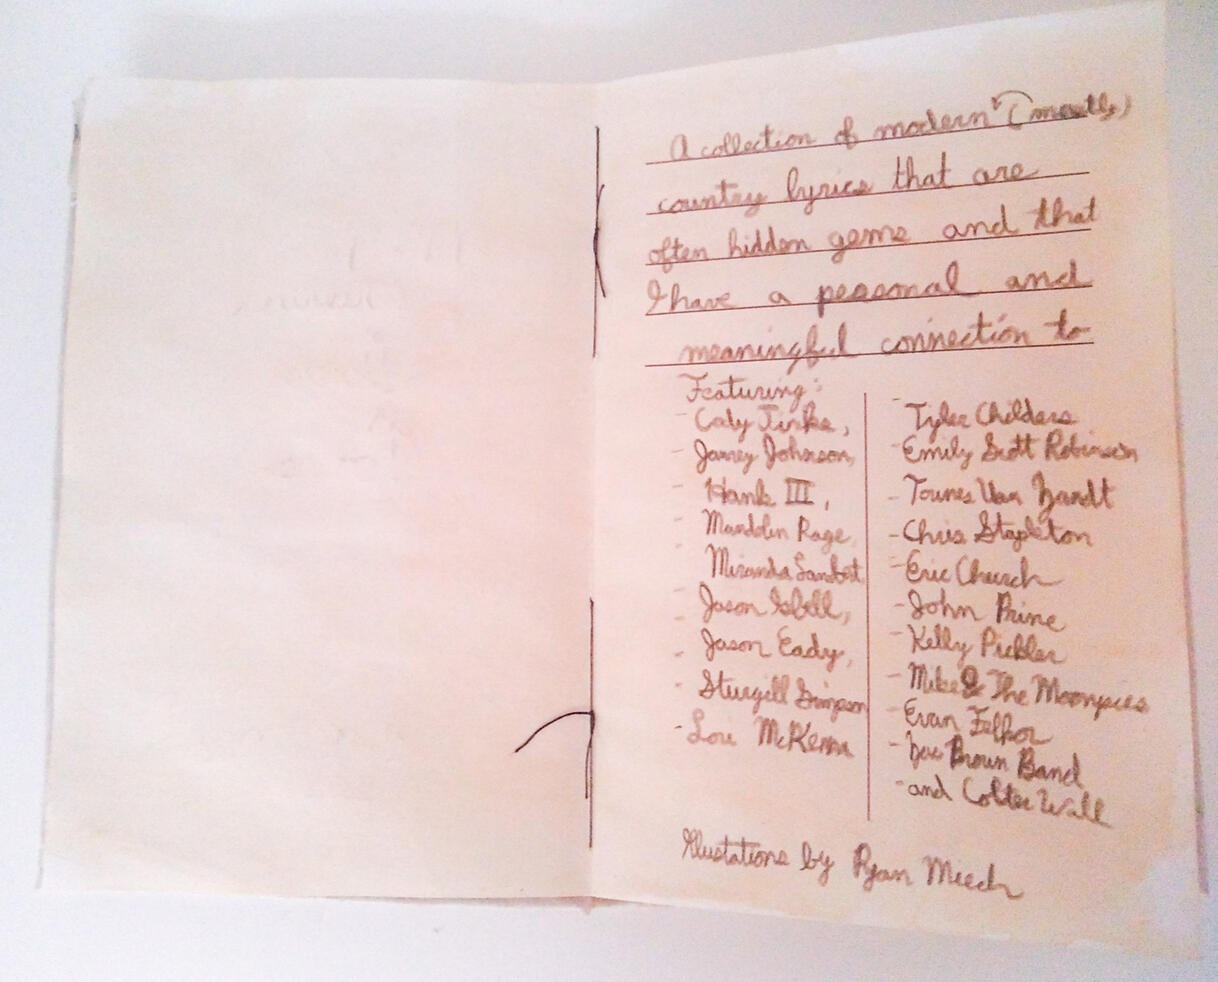 A collection of modern (mostly)
country lyrics that are
often hidden gems and that
I have a personal and
meaningful connection to
Featuring:
- Cody Jinks,
- Jamey Johnson,
- Hank III,
- Manddlin Rage,
Miranda Lambert,
- Jason Isbell,
- Jason Eady,
- Sturgill Simpson
- Lori McKenna
- Tyler Childers
- Emily Scott Robinson
- Townes Van Zandt
- Chris Stapleton
- Eric Church
- John Prine
- Kelly Pickler
- Mike & The Moonpies
- Evan Felker
- Zac Brown Band
- and Colter Wall
Illustations by Ryan Miech